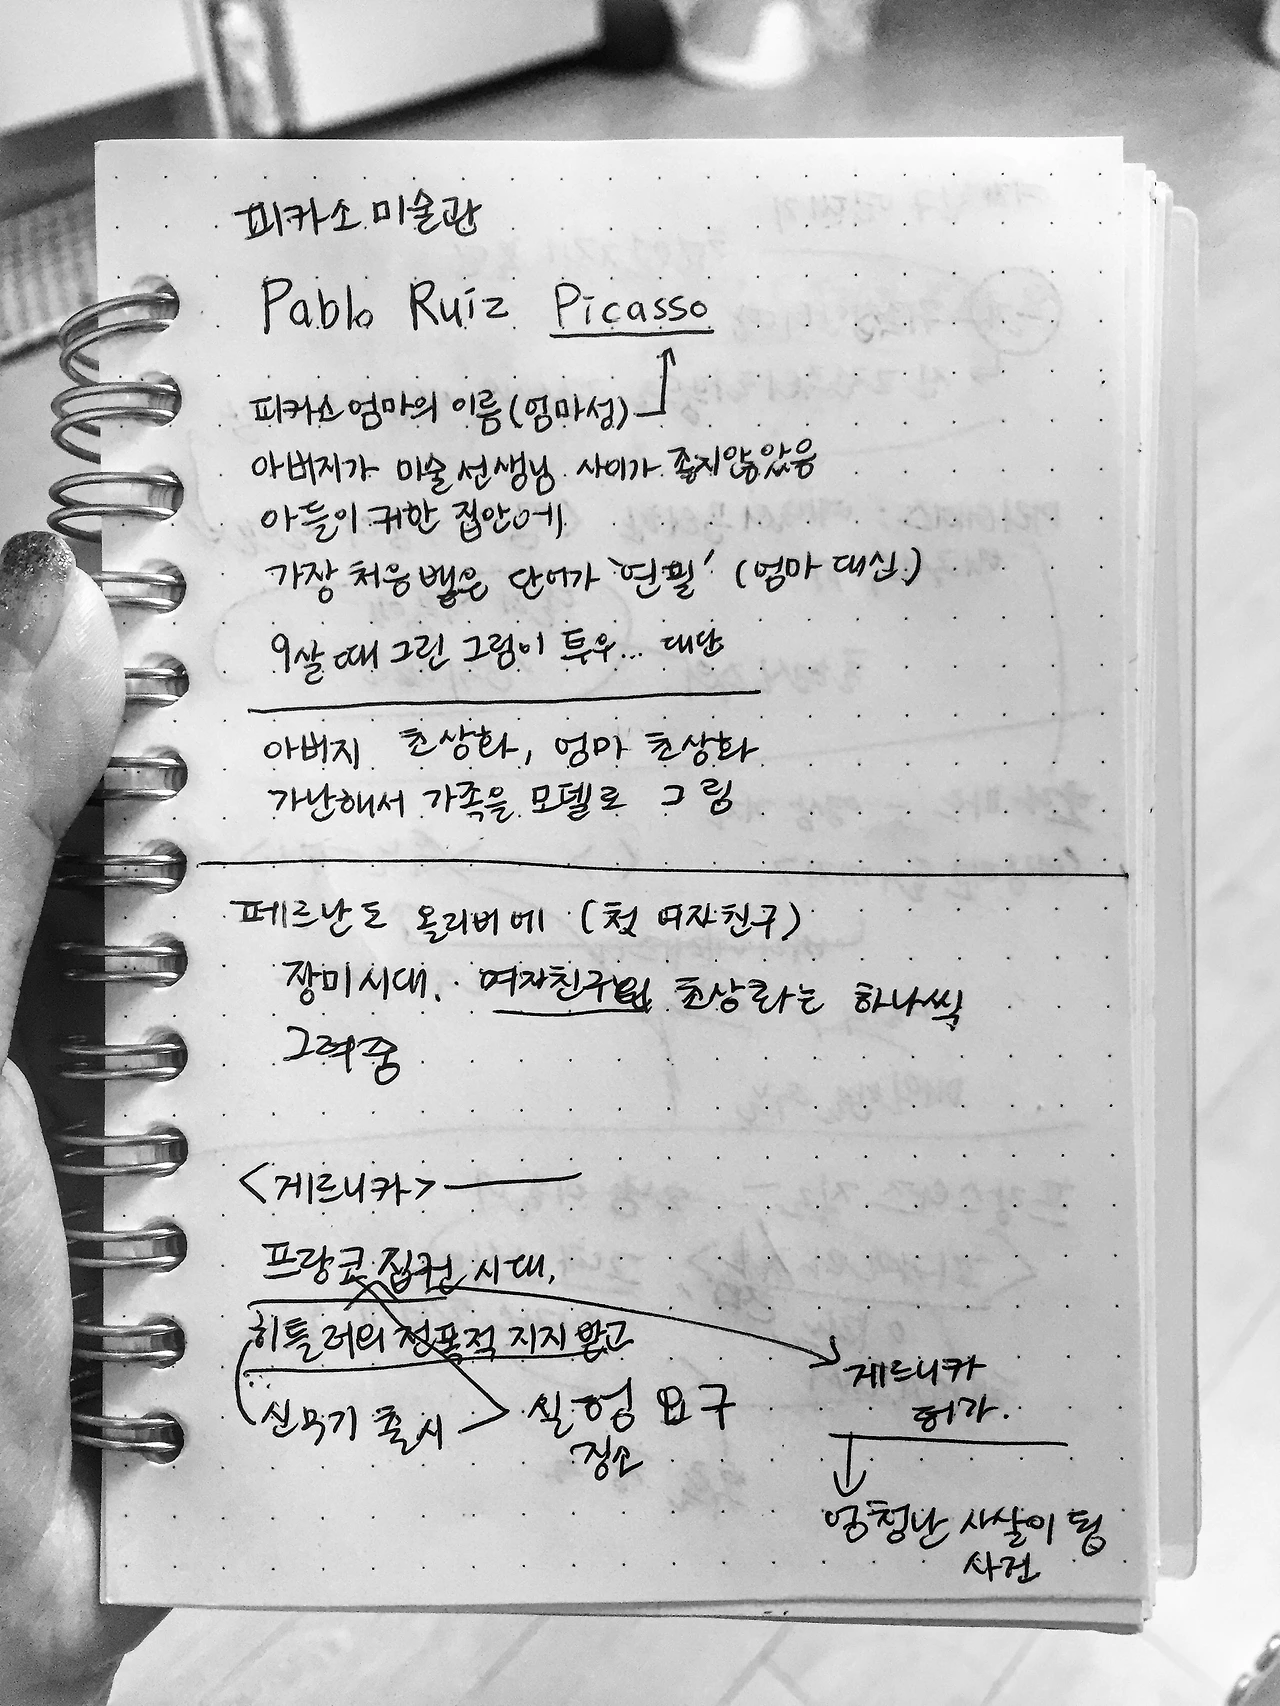 피카소 미술관
Pablo Ruiz Picasso
피카소 엄마의 이름 (엄마성)
아버지가 미술선생님 사이가 좋지않았음
아들이 귀한 집안에
가장 처음 뱉은 단어가 '연필' (엄마 대신)
9살 때 그린 그림이 투우... 대단
아버지 초상화, 엄마 초상화
가난해서 가족을 모델로 그림
페르난도 올리비에 (첫 여자친구)
장미시대. 여자친구의 초상화는 하나씩
그려줌
<게르니카>
프랑코 집권 시대,
히틀러의 전폭적 지지 받고
게르니카
허가.
신무기 출시
실험 요구
장소
엄청난 사살이 된
사건